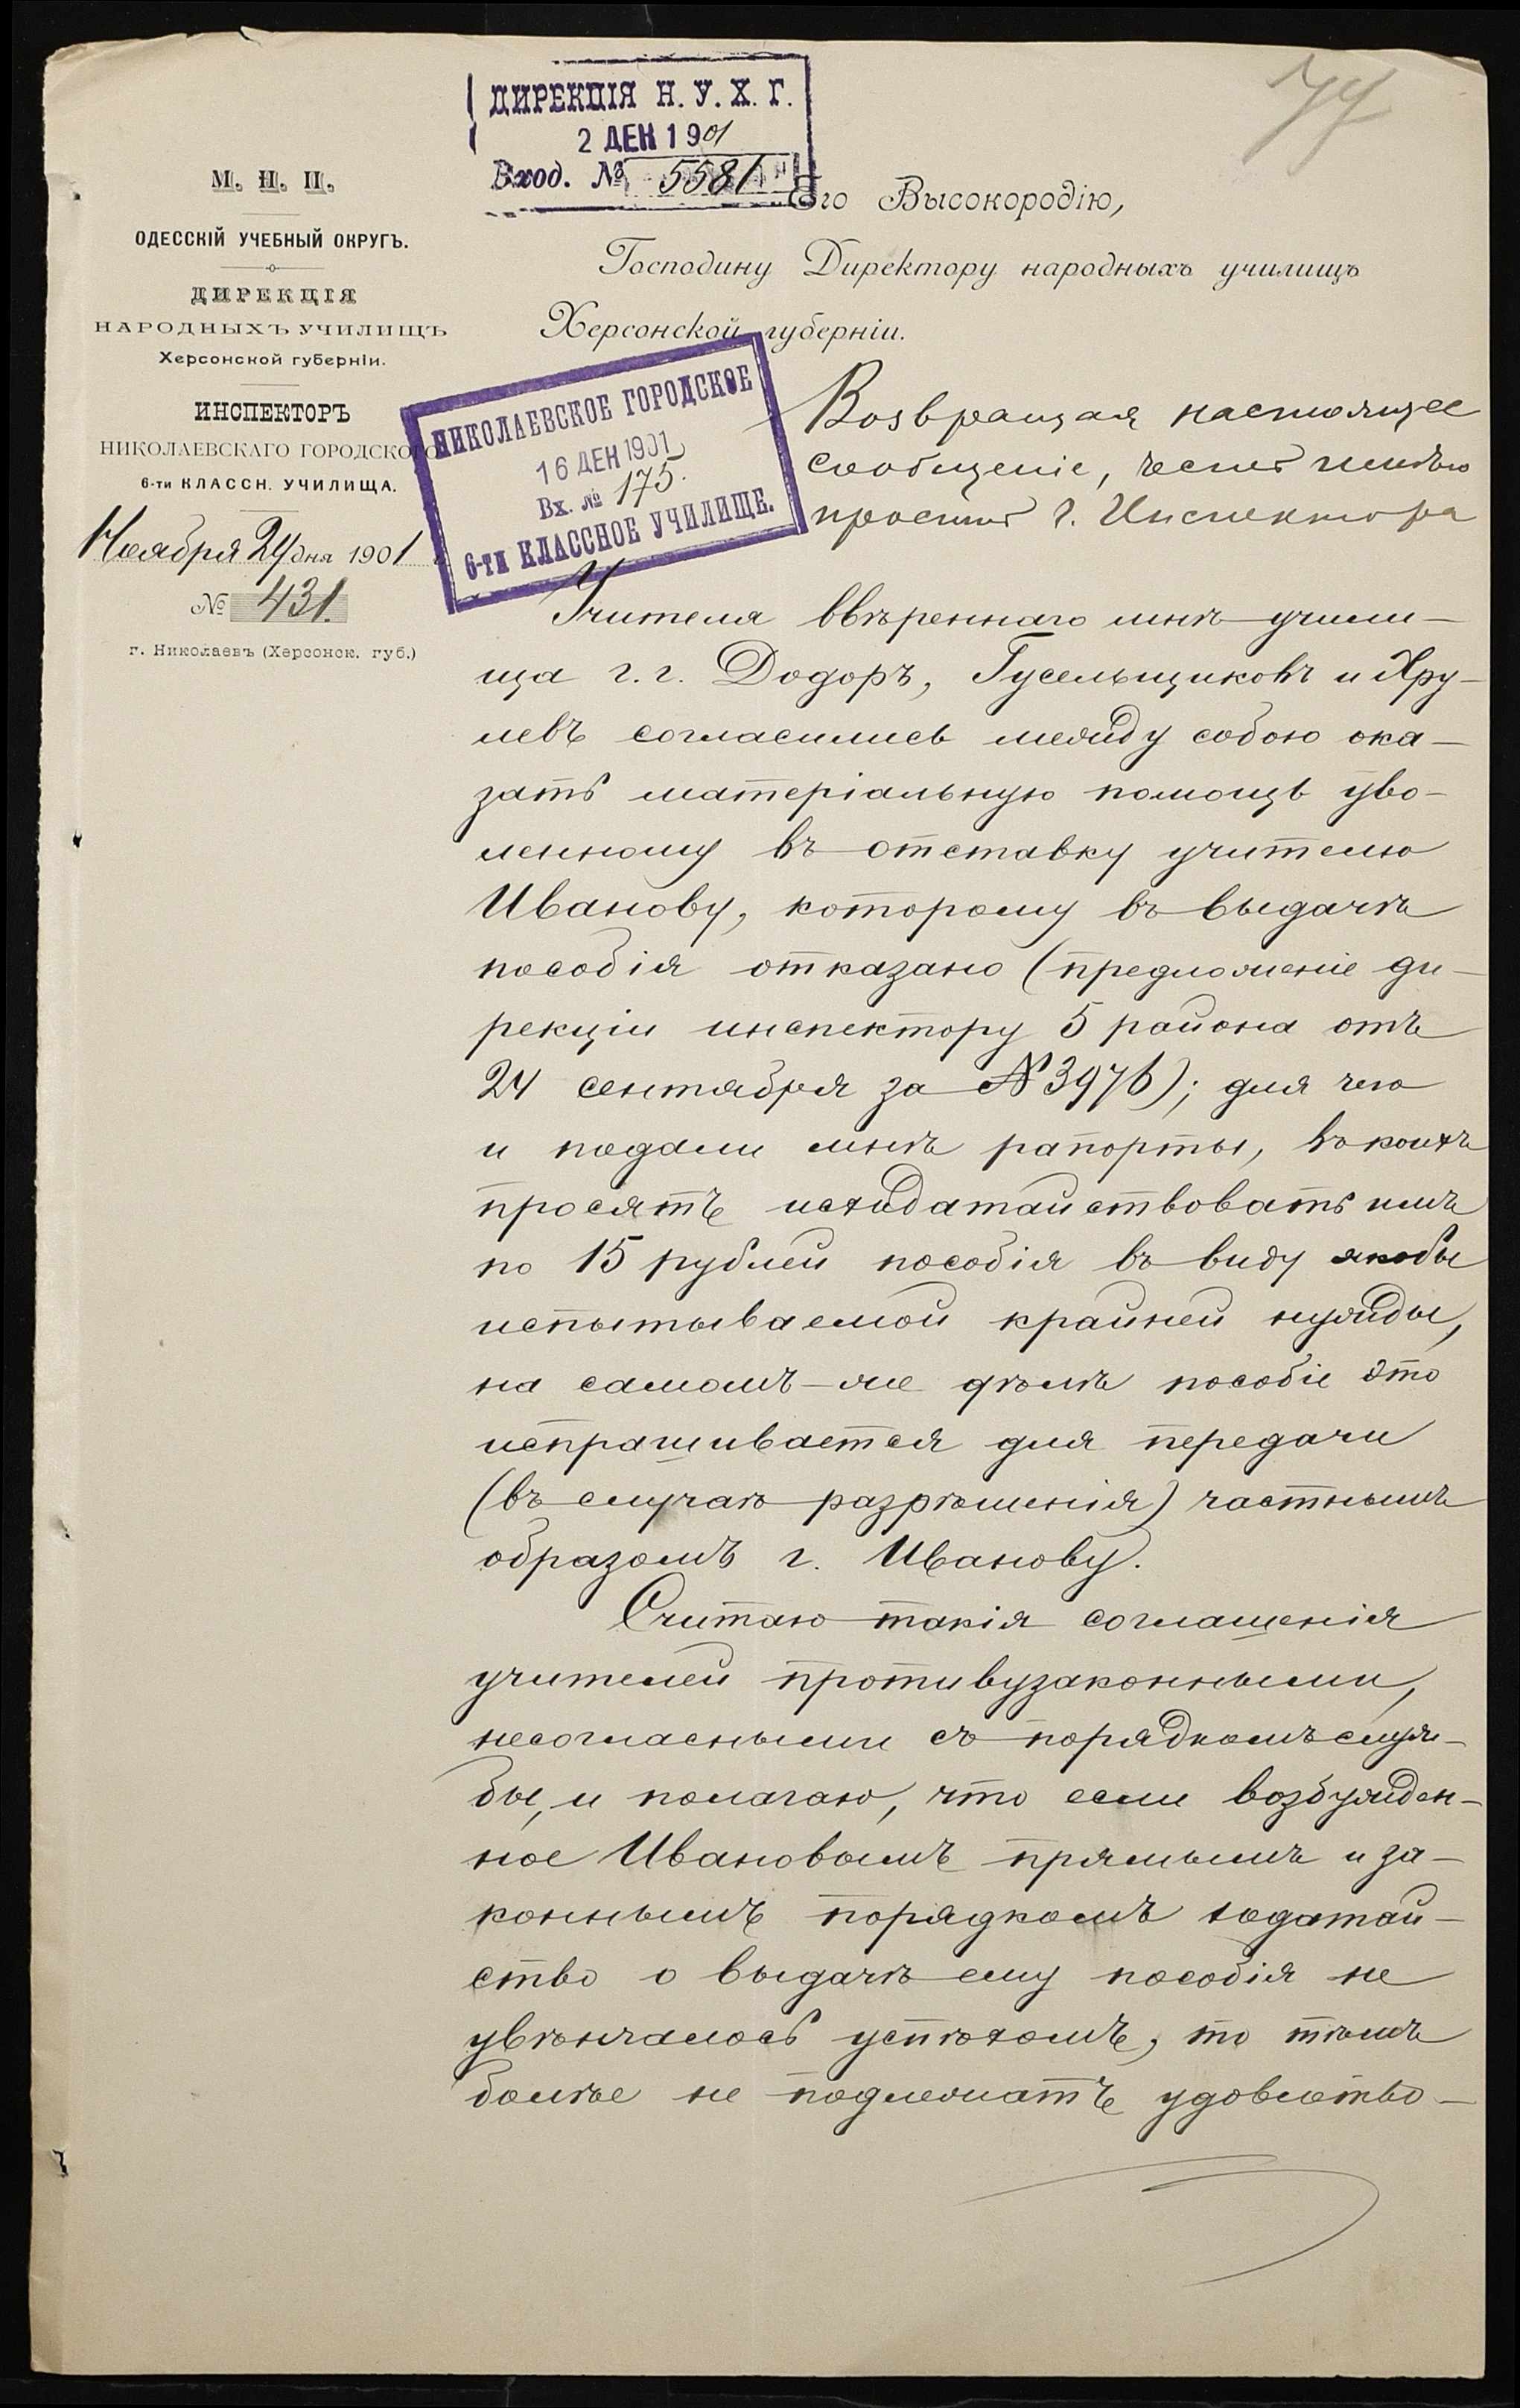 77
ДИРЕКЦІЯ Н. У. Х. Г.
2 ДЕК 1901
Вход. № 5581
М. Н. П.
ОДЕССКІЙ УЧЕБНЫЙ ОКРУГЪ.
ДИРЕКЦІЯ
НАРОДНЫХЪ УЧИЛИЩЪ
Херсонской губерніи.
ИНСПЕКТОРЪ
НИКОЛАЕВСКАГО ГОРОДСКОГО
6-ти КЛАССН. УЧИЛИЩА.
Ноября 24 дня 1901 г.
№ 431.
г. Николаевъ (Херсонск. губ.)
Его Высокородію,
Господину Директору народныхъ училищъ
Херсонской губерніи.
НИКОЛАЕВСКОЕ ГОРОДСКОЕ
16 ДЕК 1901
Вх. № 175.
6-ТИ КЛАССНОЕ УЧИЛИЩЕ.
Возвращая настоящее
сообщеніе, честь имѣю
просить г. Инспектора
Учителя ввѣреннаго мнѣ учили-
ща г. г. Додоръ, Гусельщиковъ и Хру-
левъ согласились между собою ока-
зать матеріальную помощь уво-
ленному въ отставку учителю
Иванову, которому въ выдачѣ
пособія отказано (предложеніе ди-
рекціи инспектору 5 района отъ
24 сентября за № 3976); для чего
и подали мнѣ рапорты, въ коихъ
просятъ исходатайствовать имъ
по 15 рублей пособія въ виду якобы
испытываемой крайней нужды,
на самомъ-же дѣлѣ пособіе это
испрашивается для передачи
(въ случаѣ разрѣшенія) частнымъ
образомъ г. Иванову.
Считаю такія соглашенія
учителей противузаконными,
несогласными съ порядкомъ служ-
бы, и полагаю, что если возбужден-
ное Ивановымъ прямымъ и за-
коннымъ порядкомъ ходатай-
ство о выдачѣ ему пособія не
увѣнчалось успѣхомъ, то тѣмъ
болѣе не подлежатъ удовлетво-